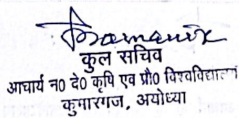 कुल सचिव
आचार्य न० दे० कृषि एव प्रौ० विश्वविद्यालय
कुमारगंज, अयोध्या